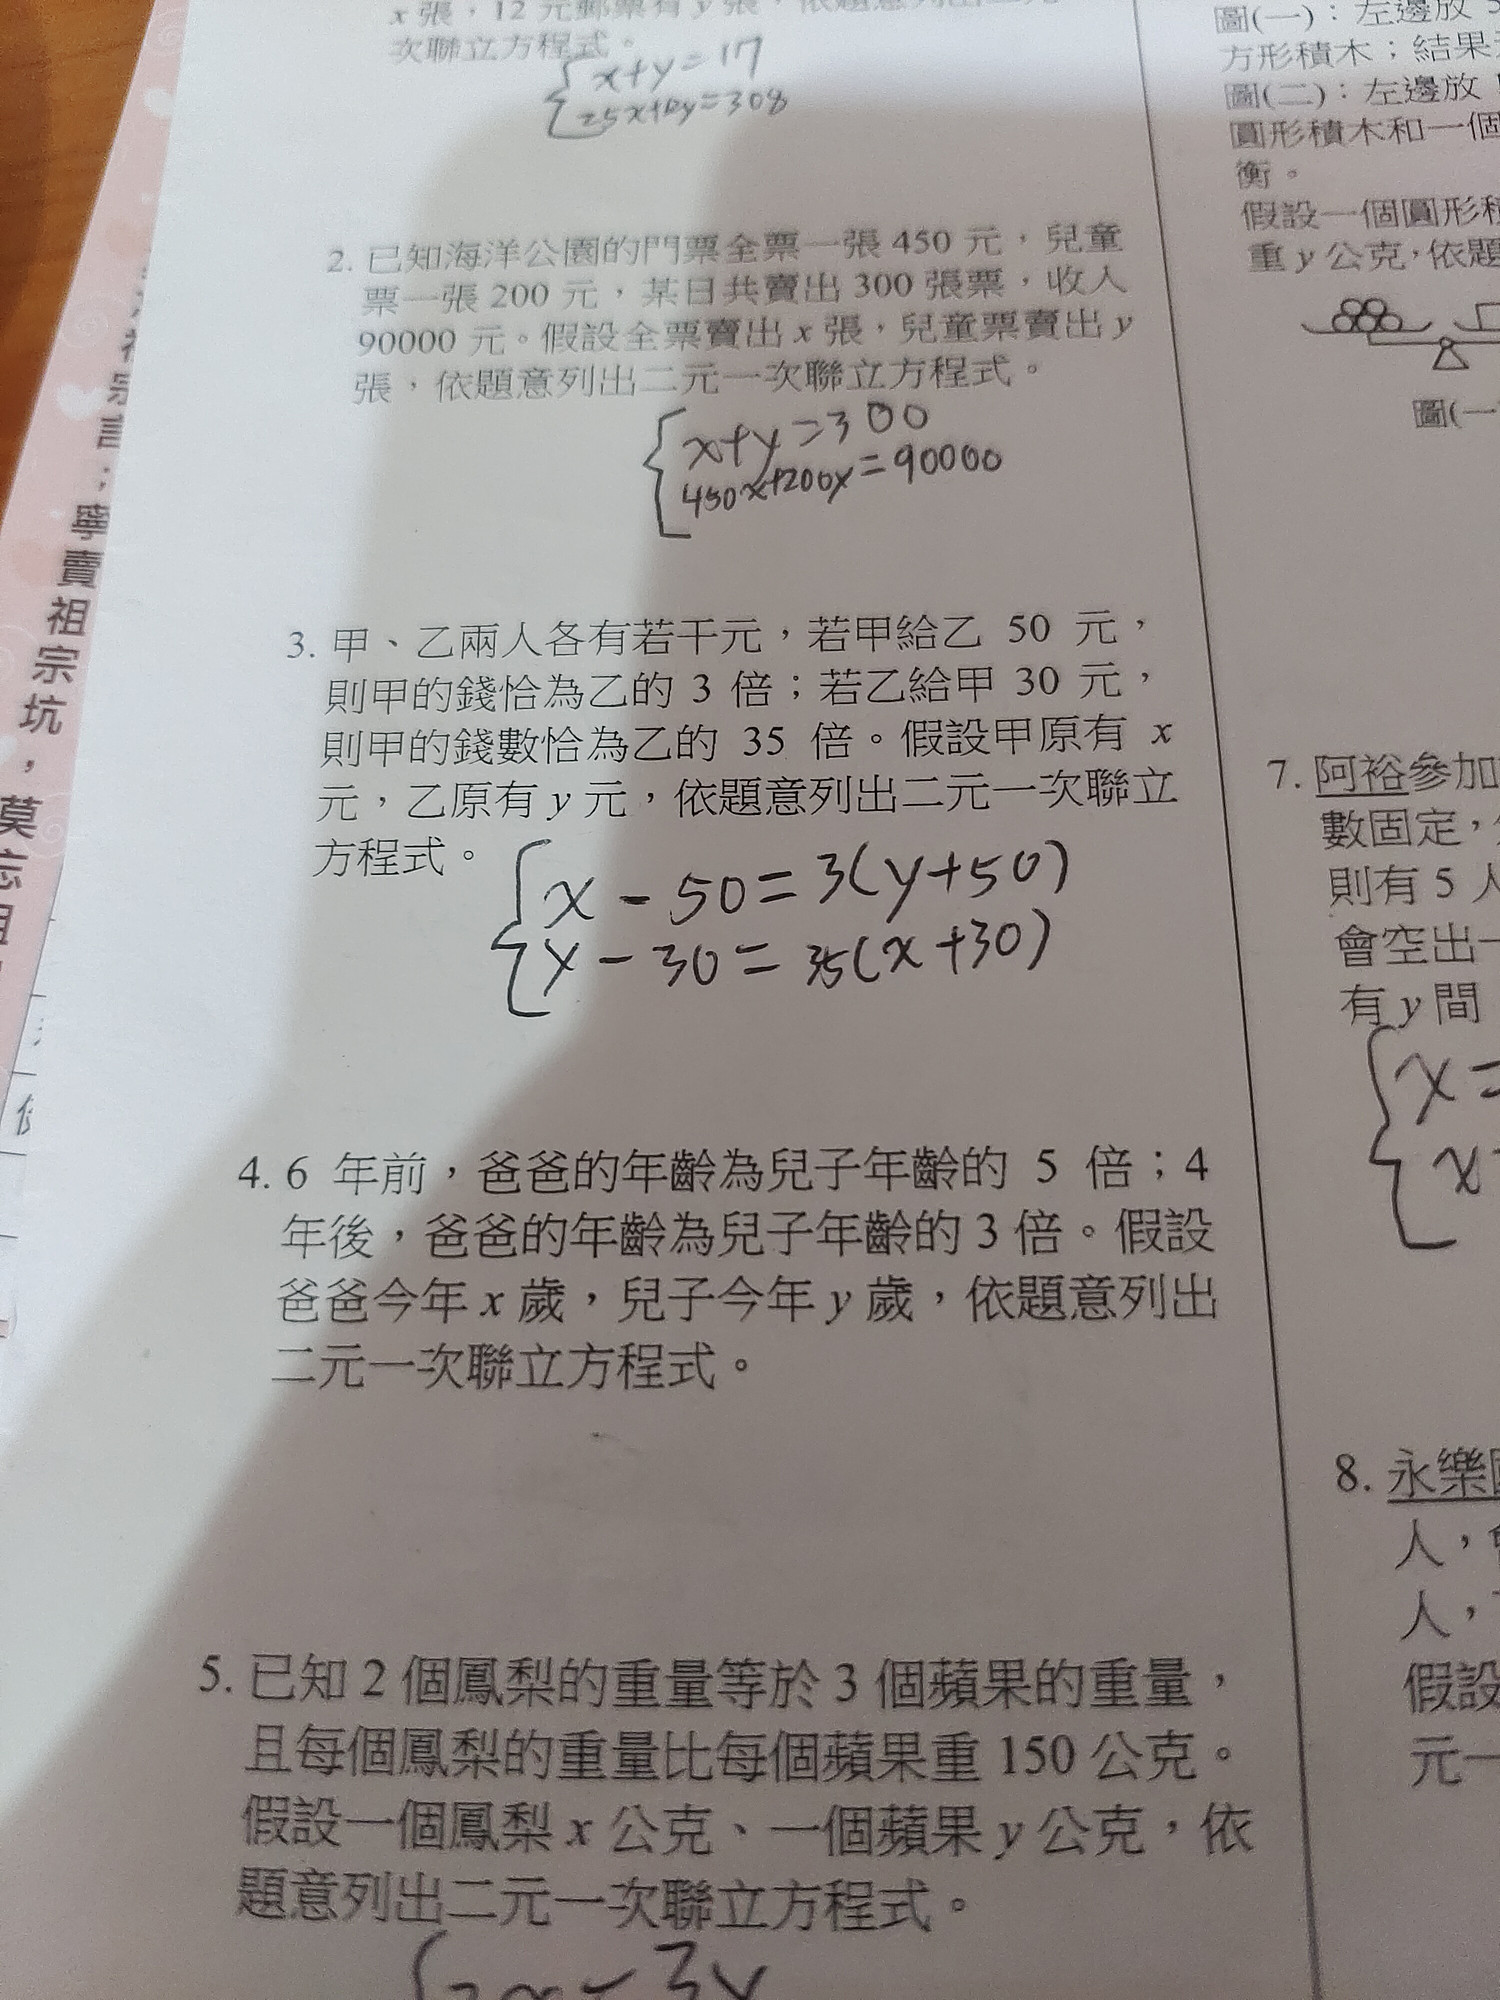 x 張，12 元郵票有 y 張，依題意列出二元
次聯立方程式。
x+y=17
25x+12y=308
2. 已知海洋公園的門票全票一張 450 元，兒童
票一張 200 元，某日共賣出 300 張票，收入
90000 元。假設全票賣出 x 張，兒童票賣出 y
張，依題意列出二元一次聯立方程式。
x+y=300
450x+200y=90000
3. 甲、乙兩人各有若干元，若甲給乙 50 元，
則甲的錢恰為乙的 3 倍；若乙給甲 30 元，
則甲的錢數恰為乙的 35 倍。假設甲原有 x
元，乙原有 y 元，依題意列出二元一次聯立
方程式。
x-50=3(y+50)
y-30=35(x+30)
4. 6 年前，爸爸的年齡為兒子年齡的 5 倍；4
年後，爸爸的年齡為兒子年齡的 3 倍。假設
爸爸今年 x 歲，兒子今年 y 歲，依題意列出
二元一次聯立方程式。
5. 已知 2 個鳳梨的重量等於 3 個蘋果的重量，
且每個鳳梨的重量比每個蘋果重 150 公克。
假設一個鳳梨 x 公克、一個蘋果 y 公克，依
題意列出二元一次聯立方程式。
圖(一)：左邊放 5
方形積木；結果
圖(二)：左邊放
圓形積木和一個
衡。
假設一個圓形積
重 y 公克，依題
圖(一
7. 阿裕參加
數固定，
則有 5 人
會空出一
有 y 間
x=
x
8. 永樂
人，
人，
假設
元一
寧賣祖宗坑，莫忘祖